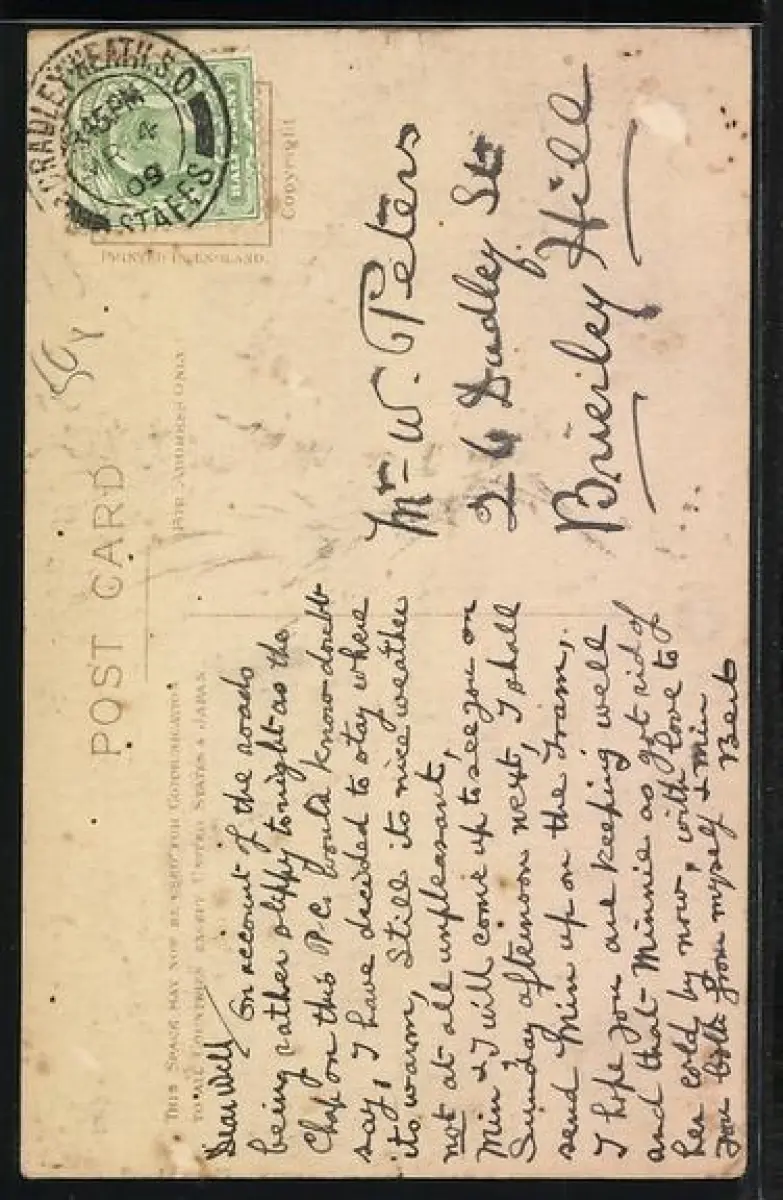 CRADLEY HEATH S.O
35 PM
4
09
STAFFS
HALF
Copyright
PRINTED IN ENGLAND.
POST CARD
THIS SPACE MAY NOW BE USED FOR COMMUNICATION
TO ALL COUNTRIES EXCEPT UNITED STATES & JAPAN.
FOR ADDRESS ONLY
Dear Will
On account of the roads
being rather slippy tonight as the
Chap on this P.C. would know doubt
say, I have decided to stay where
its warm, Still its nice weather
not at all unpleasant,
Min & I will come up to see you on
Sunday afternoon next, I shall
send Min up on the Tram,
I hope you are keeping well
and that Minnie as got rid of
her cold by now, with love to
you both from myself & Min
Bert
Mr W. Peters
26 Dudley St
Brierley Hill